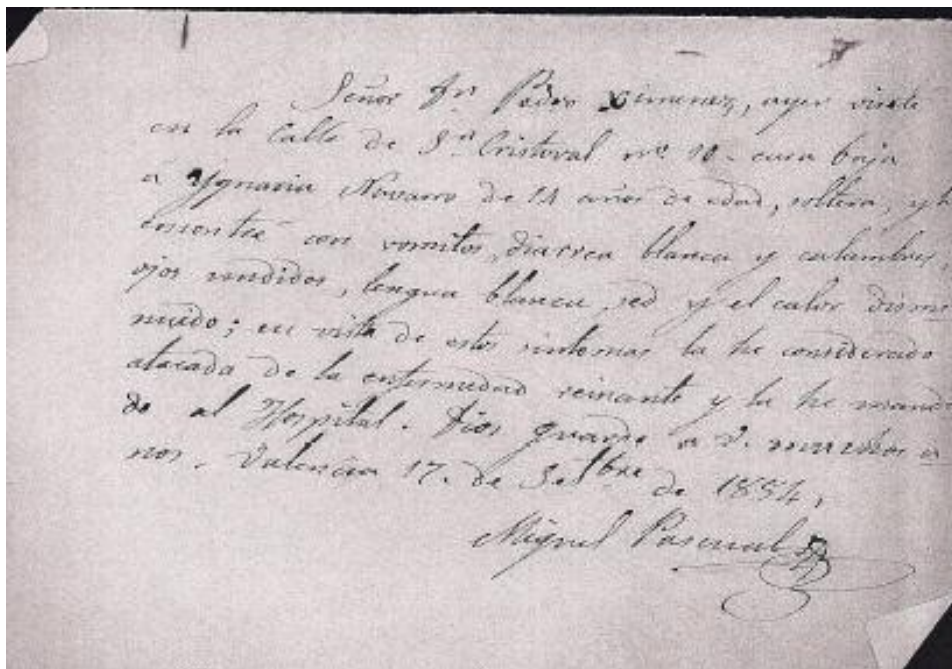 Señor Dn. Pedro Ximenez, ayer visité
en la Calle de Sn. Cristoval nº 10. casa baja
á Ygnacia Navarro de 14 años de edad, soltera, y la
encontré con vomitos, diarrea blanca y calambres,
ojos undidos, lengua blanca, sed y el calor dismi
nuido; en vista de estos sintomas la he considerado
atacada de la enfermedad reinante y la he manda
do al Hospital. Dios guarde a V. muchos a
ños. Valencia 17. de Setbre de 1854,
Miguel Pascual